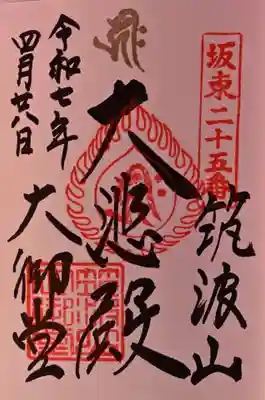 坂東二十五番
筑波山
大悲殿
大御堂
令和七年
四月廿八日